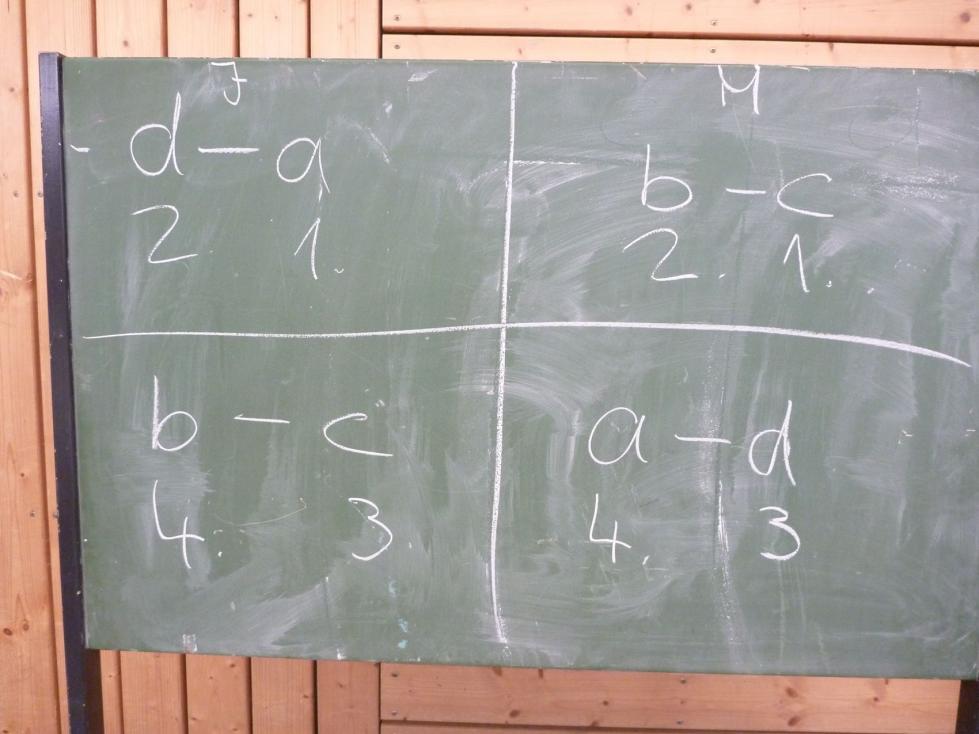 J
d - a
2. 1.
M
b - c
2. 1.
b - c
4. 3.
a - d
4. 3